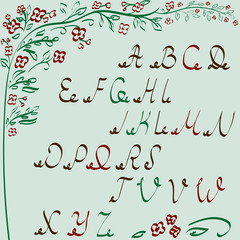 A B C D
E F G H I
J K L M N
O P Q R S
T U V W
X Y Z